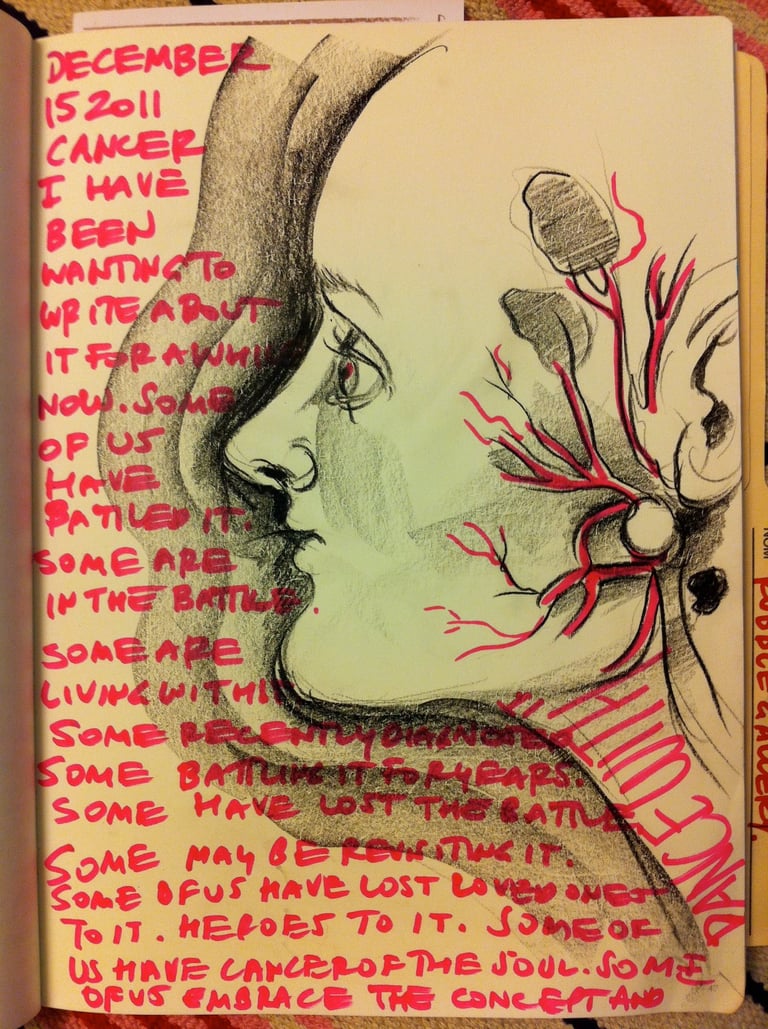 DECEMBER
15 2011
CANCER
I HAVE
BEEN
WANTING TO
WRITE ABOUT
IT FOR A WHILE
NOW. SOME
OF US
HAVE
BATTLED IT.
SOME ARE
IN THE BATTLE.
SOME ARE
LIVING WITH IT
SOME RECENTLY DIAGNOSED
SOME BATTLING IT FOR YEARS.
SOME HAVE LOST THE BATTLE
SOME MAY BE REVISITING IT.
SOME OF US HAVE LOST LOVED ONES
TO IT. HEROES TO IT. SOME OF
US HAVE CANCER OF THE SOUL. SOME
OF US EMBRACE THE CONCEPT AND
DANCE WITH IT